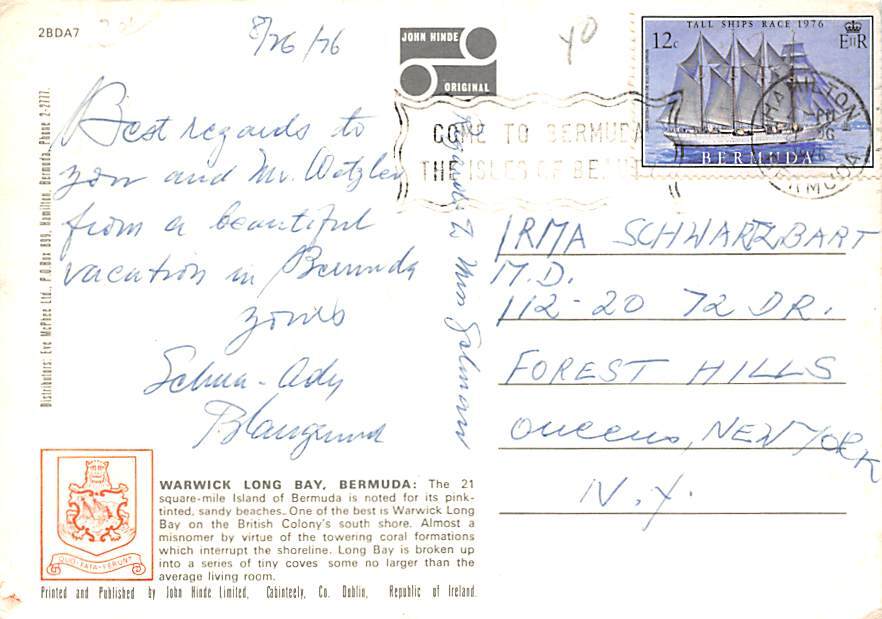 2BDA7
8/26/76
JOHN HINDE
ORIGINAL
40
TALL SHIPS RACE 1976
12c
EIIR
BERMUDA
HAMILTON
PM
26
BERMUDA
COME TO BERMUDA
THE ISLES OF
Distributors: Eve McPhee Ltd., P.O. Box 899, Hamilton, Bermuda, Phone 2-2777.
Best regards to
you and Mr. Wetzler
from a beautiful
vacation in Bermuda
yours
Regards to Miss
IRMA SCHWARTZBART
M.D.
112-20 72 DR.
FOREST HILLS
Queens, NEW YORK
N.Y.
QUO FATA FERUNT
WARWICK LONG BAY, BERMUDA: The 21
square-mile Island of Bermuda is noted for its pink-
tinted, sandy beaches. One of the best is Warwick Long
Bay on the British Colony's south shore. Almost a
misnomer by virtue of the towering coral formations
which interrupt the shoreline. Long Bay is broken up
into a series of tiny coves some no larger than the
average living room.
Printed and Published by John Hinde Limited, Cabinteely, Co. Dublin, Republic of Ireland.